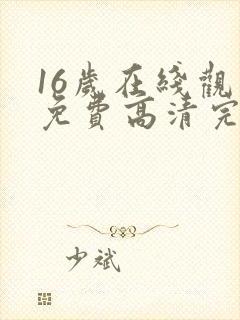 16歲在綫觀
免費高清完
少斌